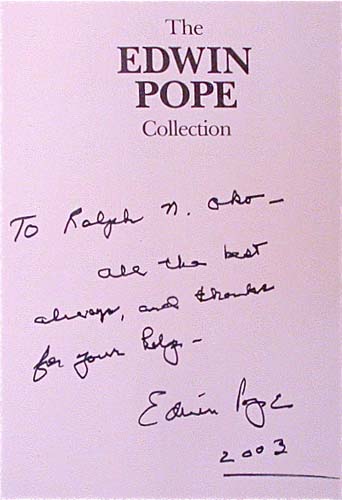 The
EDWIN
POPE
Collection
To Ralph N. Oko -
all the best
always, and thanks
for your help -
Edwin Pope
2003